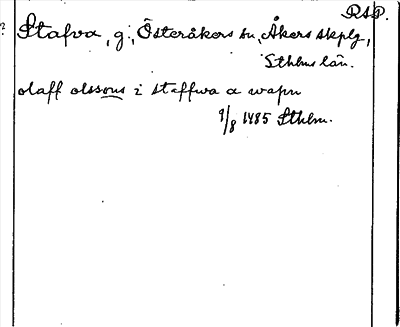 RSP.
?
Stafva, g., Österåkers sn, Åkers skplg,
Sthlms län.
olaff olssons i staffwa a wapn
9/8 1485 Sthlm.